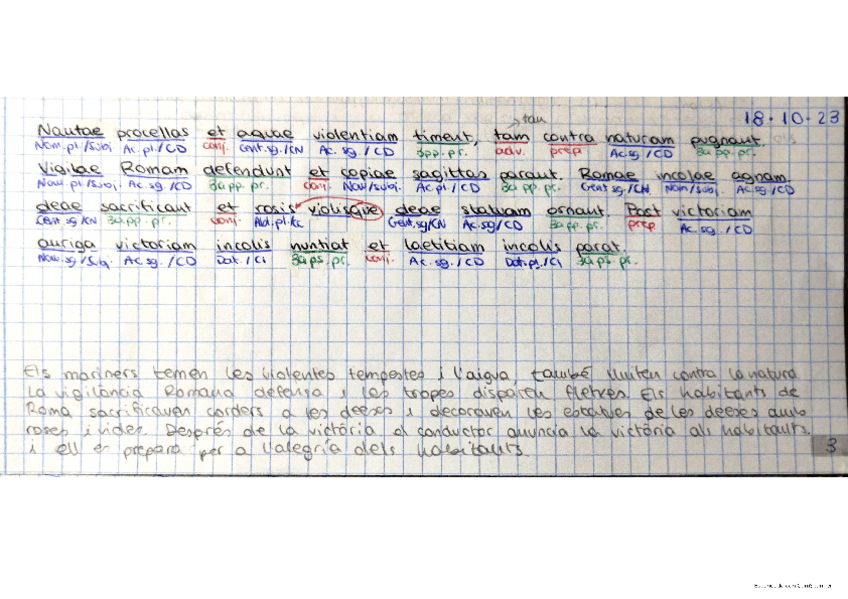 18·10·23
tam
Nautae procellas et aquae violentiam timent, tam contra naturam pugnant.
Nom.pl./Subj. Ac.pl./CD conj. Gent.sg/CN Ac. sg./CD 3pp.pr. adv. prep Ac.sg/CD 3a pp. pr.
Vigilae Romam defendunt et copiae sagittas parant. Romae incolae agnam.
Nom.pl/Subj. Ac. sg/CD 3a pp. pr. conj. Nom/Subj. Ac.pl/CD 3a pp. pr. Gent sg/CN Nom/Subj. Ac. sg/CD
deae sacrificant et rosis violisque deae statuam ornant. Post victoriam
Gent.sg/CN 3a pp. pr. conj. Abl.pl.CC Gent.sg/CN Ac.sg/CD 3a pp. pr. prep Ac. sg./CD
auriga victoriam incolis nuntiat et laetitiam incolis parat.
Nom.sg/Subj. Ac.sg./CD Dat./CI 3a ps. pr. conj. Ac. sg./CD Dat.pl./CI 3a ps. pr.
Els mariners temen les violentes tempestes i l'aigua, també lluiten contra la natura
La vigilància Romana defensa i les tropes disparen fletxes. Els habitants de
Roma sacrifiquen corders a les deeses i decoraven les estàtues de les deeses amb
roses i vides. Després de la victòria el conductor anuncia la victòria als habitants.
i ell es prepara per a l'alegria dels habitants.
3